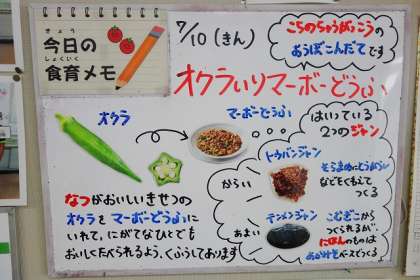 きょう
今日の
しょくいく
食育メモ
7/10(きん)
こちのちゅうがっこう の
おうぼこんだて です
オクラいりマーボーどうふ
オクラ
マーボーどうふ
はいっている
2つの ジャン
トウバンジャン
からい
そらまめにとうがらし
などをくわえて
つくる
テンメンジャン
あまい
こむぎこから
つくられるが、
にほんのものは
あかみそベースでつくる
なつがおいしいきせつの
オクラをマーボーどうふに
いれて、にがてなひとでも
おいしくたべられるよう、くふうしてあります